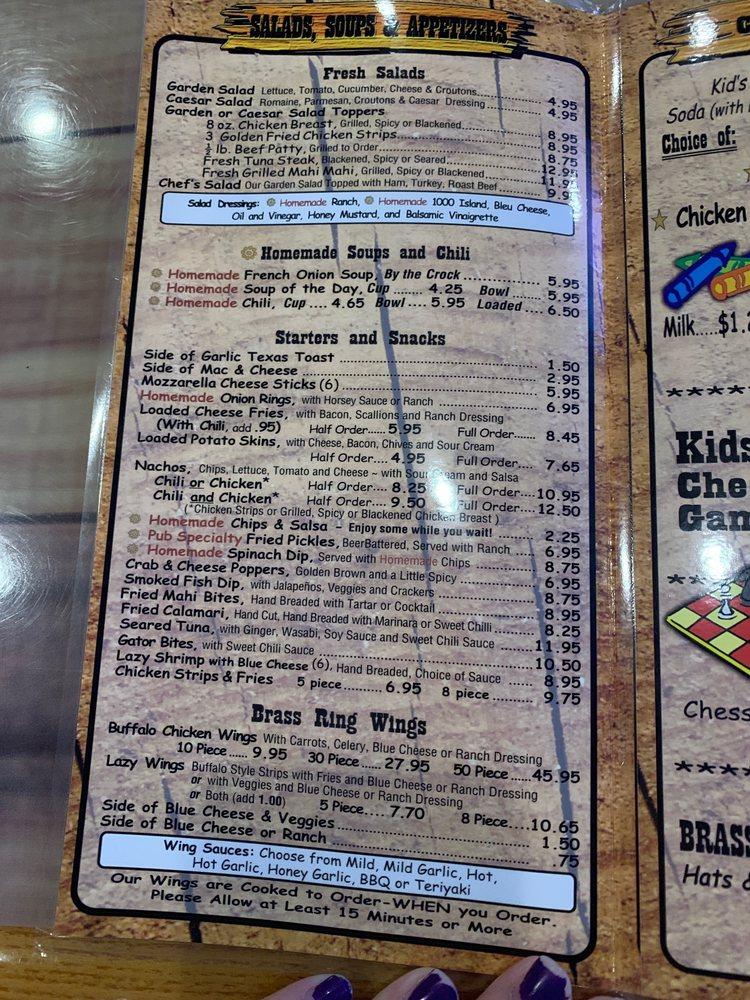 SALADS, SOUPS & APPETIZERS
Fresh Salads
Garden Salad Lettuce, Tomato, Cucumber, Cheese & Croutons 4.95
Caesar Salad Romaine, Parmesan, Croutons & Caesar Dressing 4.95
Garden or Caesar Salad Toppers
8 oz. Chicken Breast, Grilled, Spicy or Blackened 8.95
3 Golden Fried Chicken Strips 8.95
½ lb. Beef Patty, Grilled to Order 8.75
Fresh Tuna Steak, Blackened, Spicy or Seared 12.95
Fresh Grilled Mahi Mahi, Grilled, Spicy or Blackened 11.95
Chef's Salad Our Garden Salad Topped with Ham, Turkey, Roast Beef 9.95
Salad Dressings: Homemade Ranch, Homemade 1000 Island, Bleu Cheese,
Oil and Vinegar, Honey Mustard, and Balsamic Vinaigrette
Homemade Soups and Chili
Homemade French Onion Soup, By the Crock 5.95
Homemade Soup of the Day, Cup 4.25 Bowl 5.95
Homemade Chili, Cup .... 4.65 Bowl .... 5.95 Loaded .... 6.50
Starters and Snacks
Side of Garlic Texas Toast 1.50
Side of Mac & Cheese 2.95
Mozzarella Cheese Sticks (6) 5.95
Homemade Onion Rings, with Horsey Sauce or Ranch 6.95
Loaded Cheese Fries, with Bacon, Scallions and Ranch Dressing
(With Chili, add .95) Half Order......5.95 Full Order....... 8.45
Loaded Potato Skins, with Cheese, Bacon, Chives and Sour Cream
Half Order.... 4.95 Full Order.... 7.65
Nachos, Chips, Lettuce, Tomato and Cheese ~ with Sour Cream and Salsa
Chili or Chicken* Half Order.... 8.25 Full Order....10.95
Chili and Chicken* Half Order.... 9.50 Full Order....12.50
(*Chicken Strips or Grilled, Spicy or Blackened Chicken Breast )
Homemade Chips & Salsa - Enjoy some while you wait! 2.25
Pub Specialty Fried Pickles, BeerBattered, Served with Ranch 6.95
Homemade Spinach Dip, Served with Homemade Chips 8.75
Crab & Cheese Poppers, Golden Brown and a Little Spicy 6.95
Smoked Fish Dip, with Jalapeños, Veggies and Crackers 8.75
Fried Mahi Bites, Hand Breaded with Tartar or Cocktail 8.95
Fried Calamari, Hand Cut, Hand Breaded with Marinara or Sweet Chilli 8.25
Seared Tuna, with Ginger, Wasabi, Soy Sauce and Sweet Chili Sauce 11.95
Gator Bites, with Sweet Chili Sauce 10.50
Lazy Shrimp with Blue Cheese (6), Hand Breaded, Choice of Sauce 8.95
Chicken Strips & Fries 5 piece.......... 6.95 8 piece 9.75
Brass Ring Wings
Buffalo Chicken Wings With Carrots, Celery, Blue Cheese or Ranch Dressing
10 Piece...... 9.95 30 Piece...... 27.95 50 Piece......45.95
Lazy Wings Buffalo Style Strips with Fries and Blue Cheese or Ranch Dressing
or with Veggies and Blue Cheese or Ranch Dressing
or Both (add 1.00) 5 Piece.... 7.70 8 Piece....10.65
Side of Blue Cheese & Veggies 1.50
Side of Blue Cheese or Ranch .75
Wing Sauces: Choose from Mild, Mild Garlic, Hot,
Hot Garlic, Honey Garlic, BBQ or Teriyaki
Our Wings are Cooked to Order-WHEN you Order.
Please Allow at Least 15 Minutes or More
Kid's
Soda (with
Choice of:
Chicken
Milk.....$1.2
*****
Kids
Che
Gam
Chess
****
BRASS
Hats &